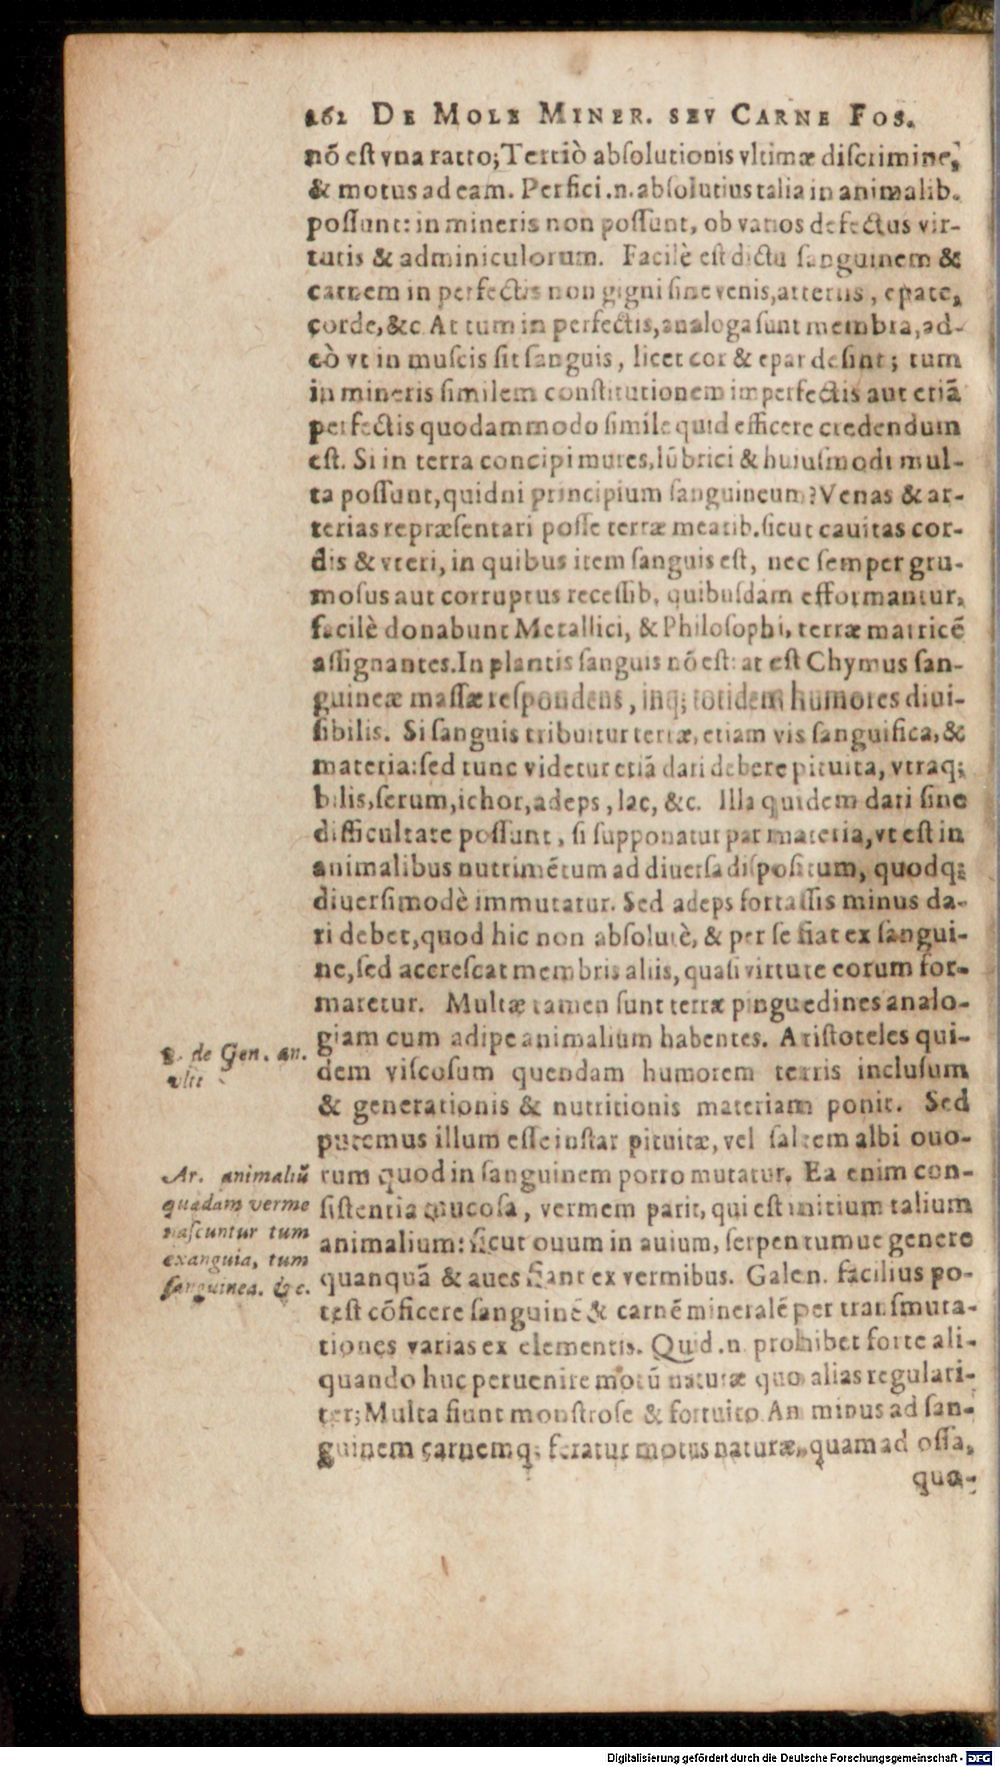 262 DE MOLE MINER. SEV CARNE FOS.
nõ est vna ratio; Tertiò absolutionis vltimæ discrimine,
& motus ad eam. Perfici .n. absolutius talia in animalib.
possunt: in mineris non possunt, ob varios defectus vir-
tutis & adminiculorum. Facilè est dictu sanguinem &
carnem in perfectis non gigni sine venis, arteriis, epate,
corde, &c. At tum in perfectis, analoga sunt membra, ad-
eò vt in muscis sit sanguis, licet cor & epar desint; tum
in mineris similem constitutionem imperfectis aut etiã
perfectis quodammodo simile quid efficere credendum
est. Si in terra concipi mures, lũbrici & huiusmodi mul-
ta possunt, quidni principium sanguineum? Venas & ar-
terias repræsentari posse terræ meatib. sicut cauitas cor-
dis & vteri, in quibus item sanguis est, nec semper gru-
mosus aut corruptus recessib. quibusdam efformantur,
facilè donabunt Metallici, & Philosophi, terræ matricẽ
assignantes. In plantis sanguis nõ est: at est Chymus san-
guineæ massæ respondens, inq; totidem humores diui-
sibilis. Si sanguis tribuitur terræ, etiam vis sanguifica, &
materia: sed tunc videtur etiã dari debere pituita, vtraq;
bilis, serum, ichor, adeps, lac, &c. Illa quidem dari sine
difficultate possunt, si supponatur par materia, vt est in
animalibus nutrimẽtum ad diuersa dispositum, quodq;
diuersimodè immutatur. Sed adeps fortassis minus da-
ri debet, quod hic non absolutè, & per se fiat ex sangui-
ne, sed accrescat membris aliis, quasi virtute eorum for-
maretur. Multæ tamen sunt terræ pinguedines analo-
giam cum adipe animalium habentes. Aristoteles qui-
dem viscosum quendam humorem terris inclusum
& generationis & nutritionis materiam ponit. Sed
putemus illum esse instar pituitæ, vel saltem albi ouo-
rum quod in sanguinem porro mutatur. Ea enim con-
sistentia mucosa, vermem parit, qui est initium talium
animalium: sicut ouum in auium, serpentumue genere
quanquã & aues fiant ex vermibus. Galen. facilius po-
test cõficere sanguinẽ & carnẽ mineralẽ per transmuta-
tiones varias ex elementis. Quid .n. prohibet forte ali-
quando huc peruenire motũ naturæ quo alias regulari-
ter; Multa fiunt monstrose & fortuito An minus ad san-
guinem carnemq; feratur motus naturæ, quam ad ossa,
qua-
de Gen. an.
vlt
Ar. animaliũ
quædam verme
nascuntur tum
exanguia, tum
sanguinea. &c.
Digitalisierung gefördert durch die Deutsche Forschungsgemeinschaft - DFG